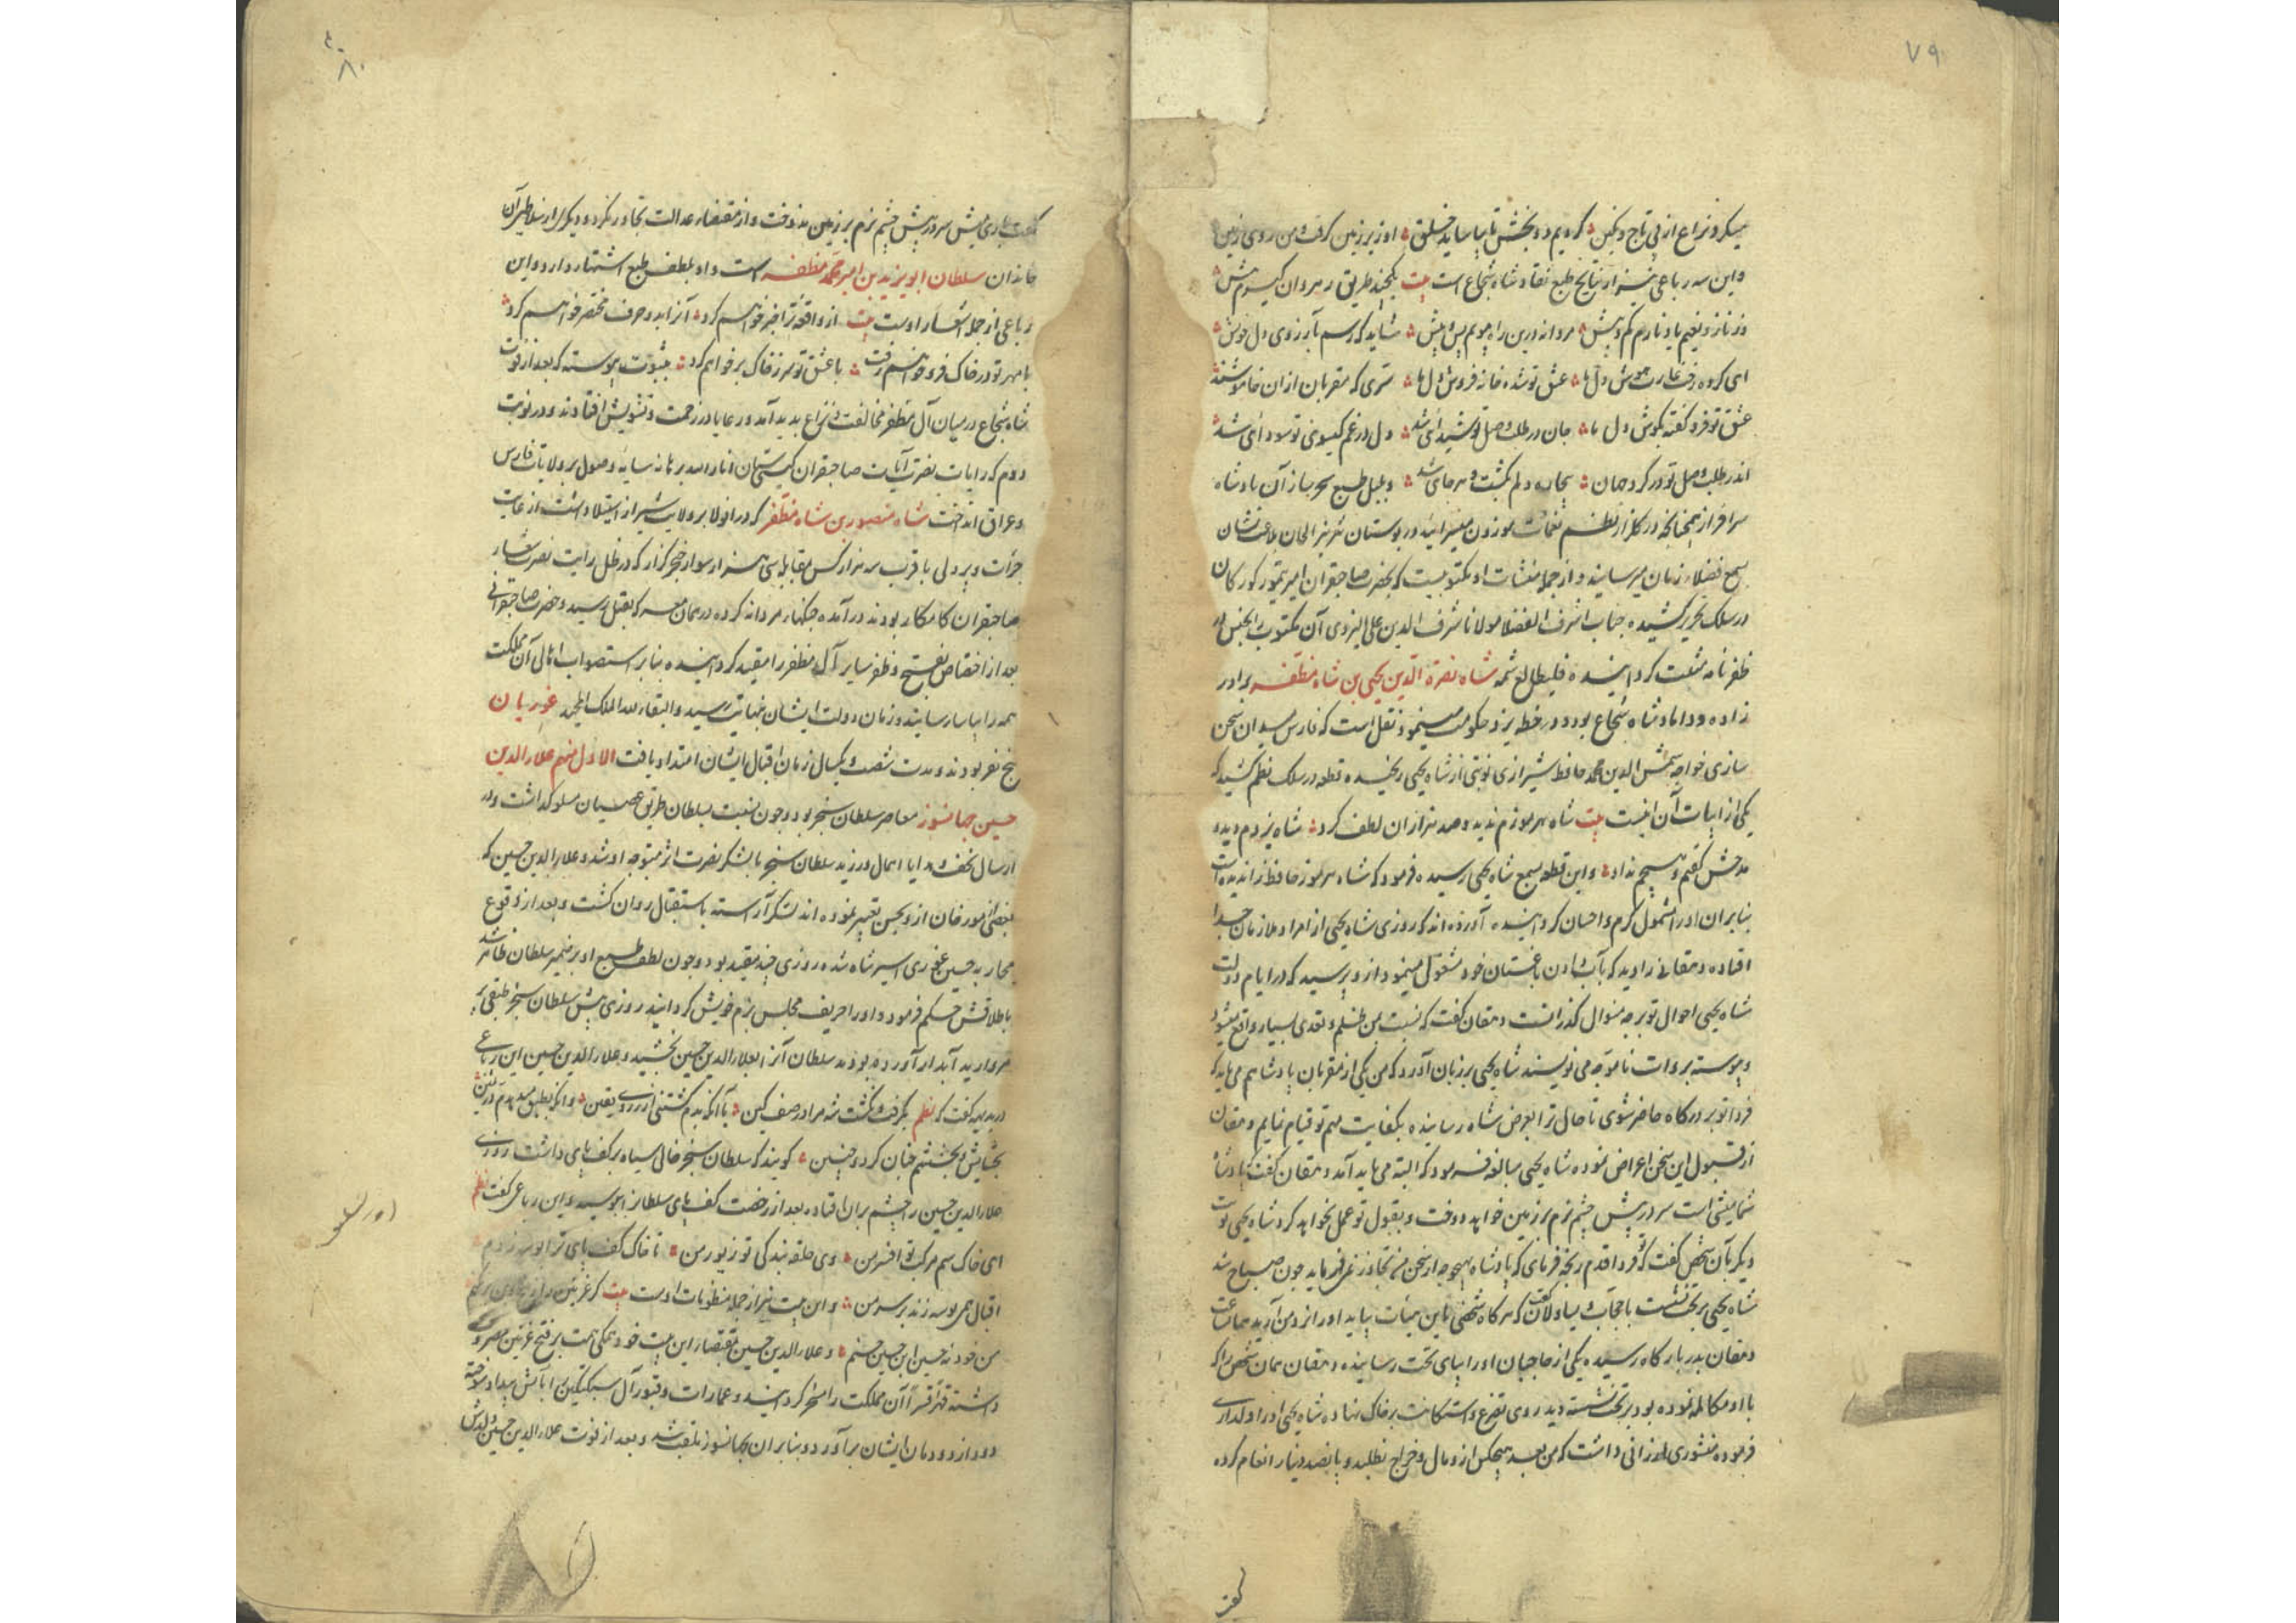 ۷۹
میکرد نزاع از پی تاج و نگین کردیم دو بخش تا بیاساید خلق او زیر زمین گرفت و من روی زمین
واین سه رباعی نیز از نتایج طبع نقاد شاه شجاع است بیت یکچند طریق رهروان گیرم پیش
وز ناز و نعیم یاد نارم کم و بیش مردانه درین راه پویم پس و پیش شاید که رسم بآرزوی دل خویش
ای کرده غارت هوش و دل ما عشق تو شده خانه فروش دل ما سری که مقربان ازان خاموشند
عشق تو فرو کفته بکوش دل ما جان در طلب وصل تو شیدائی شد دل در غم کیسوی تو سودائی شد
اندر طلب وصل تو در کرد جهان بیچاره دلم بگشت و هرجائی شد و بلبل طبع سحرساز آن پادشاه
سرافراز همچنانچه در کلزار نظم نغمات موزون میسرائید در بوستان نثر نیز الحان بلاغت نشان
بسمع فضلاء زمان میرسانید و از جمله منشات او مکتوبیست که بحضرت صاحبقران امیر تیمور کورکان
در سلک تحریر کشیده جناب اشرف الفضلا مولانا شرف الدین علی الیزدی آن مکتوب را بجنس در
ظفرنامه مثبت کردانیده فلیطالع ثمه شاه نصرة الدین یحیی بن شاه مظفر برادر
زاده و داماد شاه شجاع بود و در خطه یزد حکومت مینمود نقل است که فارس میدان سخن
سازی خواجه شمس الدین محمد حافظ شیرازی نوبتی از شاه یحیی رنجیده قطعه در سلک نظم کشید که
یکی از ابیات آن اینست بیت شاه هرموزم ندید و صد هزاران لطف کرد شاه یزدم دید و
مدحش کفتم و هیچم نداد و این قطعه بسمع شاه یحیی رسیده فرمود که شاه هرموز حافظ را ندیده است
بنابران او را مشمول کرم و احسان کردانیده آورده اند که روزی شاه یحیی از امرا و ملازمان جدا
افتاده دهقانی را دید که بآب دادن باغستان خود مشغول مینمود از و پرسید که در ایام دولت
شاه یحیی احوال تو بر چه منوال کذرانست دهقان کفت که نسبت بمن ظلم و تعدی بسیار واقع میشود
و پیوسته بروات ناموجه می نویسند شاه یحیی بر زبان آورد که من یکی از مقربان پادشاهم می باید که
فردا تو بر درکاه حاضر شوی تا حال ترا بعرض شاه رسانیده بکفایت مهم تو قیام نمایم دهقان
از قبول این سخن اعراض نموده شاه یحیی مبالغه فرمود که البته می باید آمد دهقان کفت پادشاه
شما میشی است سر در پیش چشم نرم بر زمین خواهد دوخت و بقول تو عمل نخواهد کرد شاه یحیی نوبت
دیکر بآن شخص کفت که فردا قدم رنجه فرمای که پادشاه بهیچوجه از سخن من تجاوز نمی فرماید چون صباح شد
شاه یحیی بر تخت نشست با حجاب و یساولان کفت که هرکاه شخصی باین هیأت بیاید او را نزد من آرید همان ساعت
دهقان بدر بارکاه رسیده یکی از حاجبان او را بپای تخت رسانیده دهقان همان شخص را که
با او مکالمه نموده بود بر تخت نشسته دید روی تضرع و استکانت بر خاک نهاده شاه یحیی او را دلداری
فرموده منشوری ارزانی داشت که من بعد هیچکس ازو مال و خراج نطلبد و پانصد دینار انعام کرده
کفت
۸۰
کفت باری میش سر در پیش چشم نرم بر زمین ندوخت و از مقتضاء عدالت تجاوز نکرد و دیکر از سلاطین آن
خاندان سلطان ابو یزید بن امیر محمد مظفر است و او بلطف طبع اشتهار دارد و این
رباعی از جمله اشعار اوست بیت از واقعهٔ ترا خبر خواهم کرد آنرا بدو حرف مختصر خواهم کرد
با مهر تو در خاک فرو خواهم رفت با عشق تو سر ز خاک بر خواهم کرد بثبوت پیوسته که بعد از فوت
شاه شجاع در میان آل مظفر مخالفت و نزاع پدید آمد و رعایا در زحمت و تشویش افتادند و در نوبت
دوم که رایات نصرت آیات صاحبقران کیتی ستان انار الله برهانه سایه وصول بر ولایات فارس
و عراق انداخت شاه منصور بن شاه مظفر که در انولا بر ولایت شیراز استیلا داشت از غایت
جرأت و پردلی با قرب سه هزار کس مقابل سی هزار سوار خنجرکزار که در ظل رایت نصرت شعار
صاحبقران کامکار بودند در آمده جنکهاء مردانه کرده در همان معرکه بقتل رسید و حضرت صاحبقرانی
بعد از اختصاص بفتح و ظفر سایر آل مظفر را مقید کردانیده بنابر استصواب اهالی آن مملکت
همه را بیاسا رسانید و زمان دولت ایشان بنهایت رسید والبقاء لله الملک المجید غوریان
پنج نفر بودند و مدت شصت و یکسال زمان اقبال ایشان امتداد یافت الاول منهم علاء الدین
حسین جهانسوز معاصر سلطان سنجر بود و چون نسبت بسلطان طریق عصیان مسلوک داشت و در
ارسال تحف و هدایا اهمال ورزید سلطان سنجر با لشکر نصرت اثر متوجه او شد و علاء الدین حسین که
بعضی مورخان ازو بحسن تعبیر نموده اند لشکر آراسته باستقبال روان کشت و بعد از وقوع
محاربه حسین غوری اسیر شاه شده روزی چند مقید بود و چون لطف طبع او بر ضمیر سلطان ظاهر شد
باطلاقش حکم فرمود و او را حریف مجلس بزم خویش کردانید روزی پیش سلطان سنجر طبقی پر
مروارید آبدار آورده بودند سلطان آنرا بعلاء الدین حسین بخشید و علاء الدین حسین این رباعی
در بدیهه کفت که نظم بکرفت و نکشت شه مرا در صف کین با آنکه بدم کشتنی از روی یقین وانکه بطبق میدهدم در ثمین
بخشایش و بخششم چنان کرد و چنین کویند که سلطان سنجر خالی سیاه بر کف پای داشت روزی
علاء الدین حسین را چشم بران افتاده بعد از رخصت کف پای سلطانرا بوسید و این رباعی کفت نظم
ای خاک سم مرکب تو افسر من وی حلقه بندکی تو زیور من تا خاک کف پای ترا بوسه زدم
اقبال همی بوسه زند بر سر من و این بیت نیز از جمله منظومات اوست بیت کر غزنین را از بیخ و بن بر نکنم
من خود نه حسین ابن حسین حسنم و علاء الدین حسین بمقتضاء این بیت خود همکی همت بر فتح غزنین مصروف
داشته قهراً قسراً آن مملکت را مسخر کردانید و عمارات و قبور آل سبکتکین را بآتش بیداد سوخته
دود از دودمان ایشان برآورد و بنابران بجهانسوز ملقب شد و بعد از فوت علاء الدین حسین ولدش